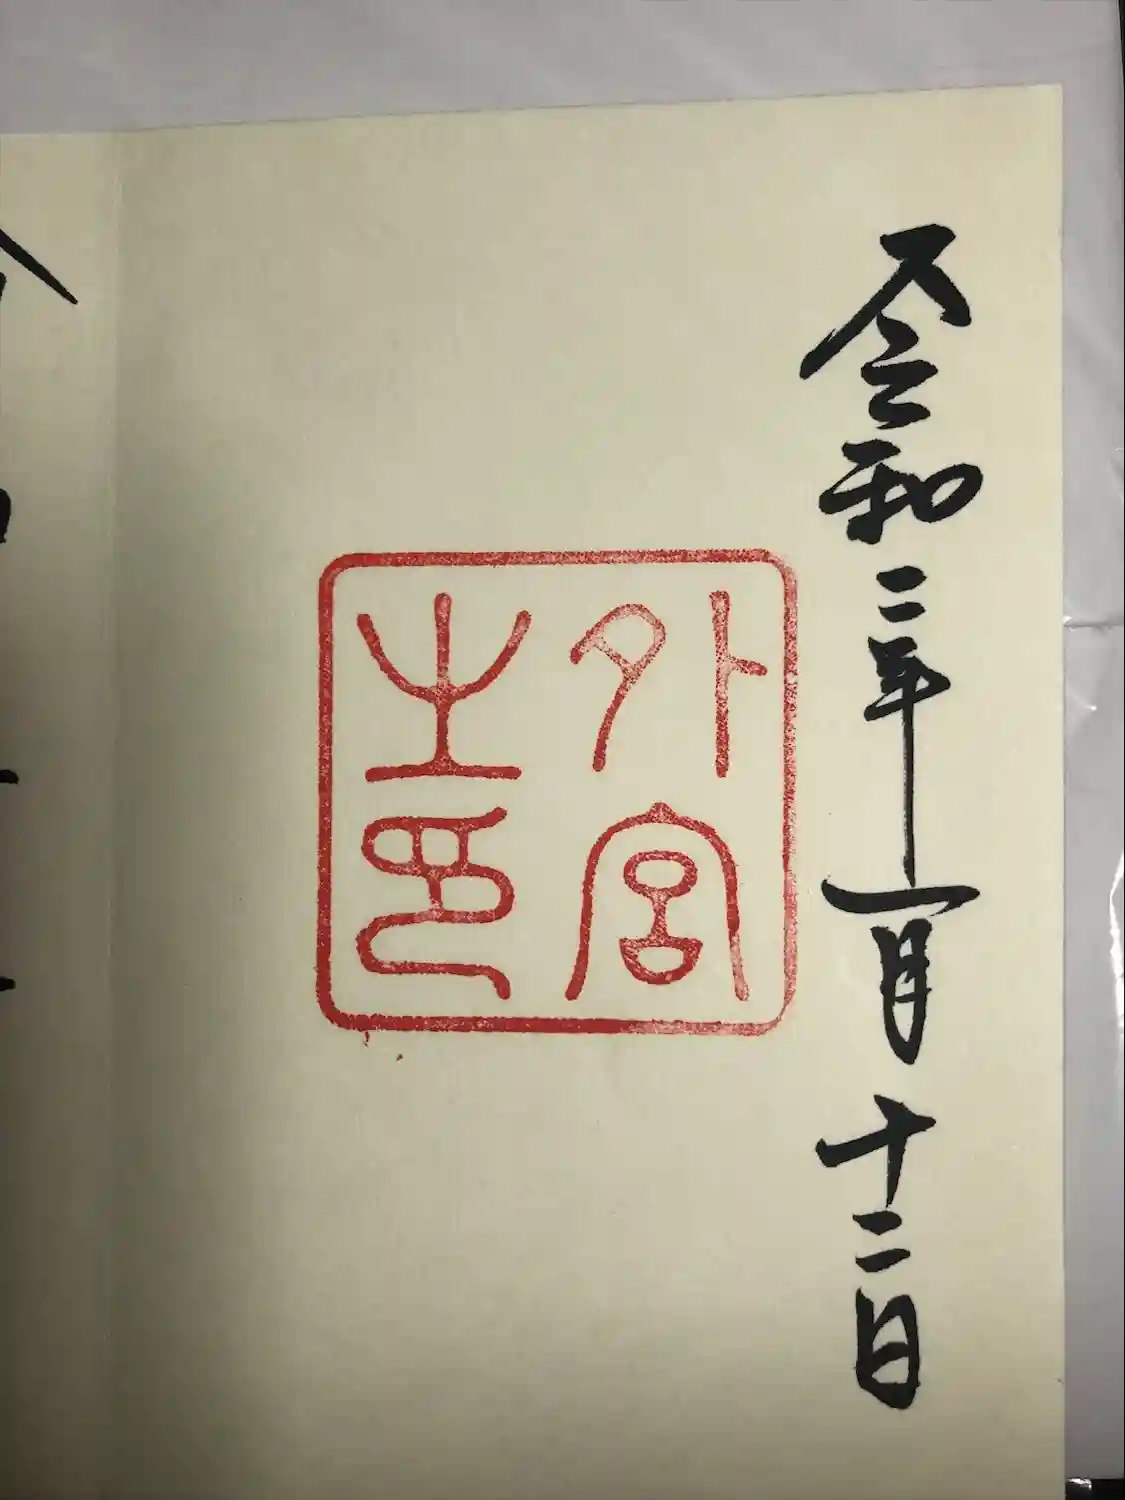 令和二年一月十二日
外宮
之印